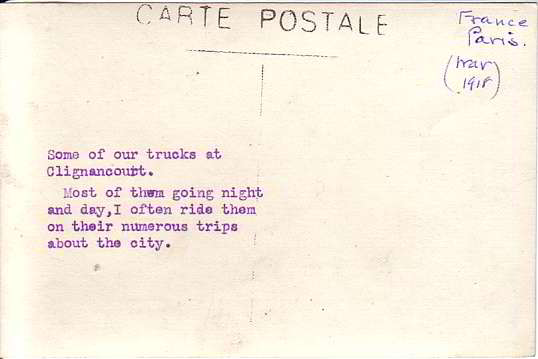 CARTE POSTALE
France
Paris.
(War
1918)
Some of our trucks at
Clignancourt.
Most of them going night
and day,I often ride them
on their numerous trips
about the city.